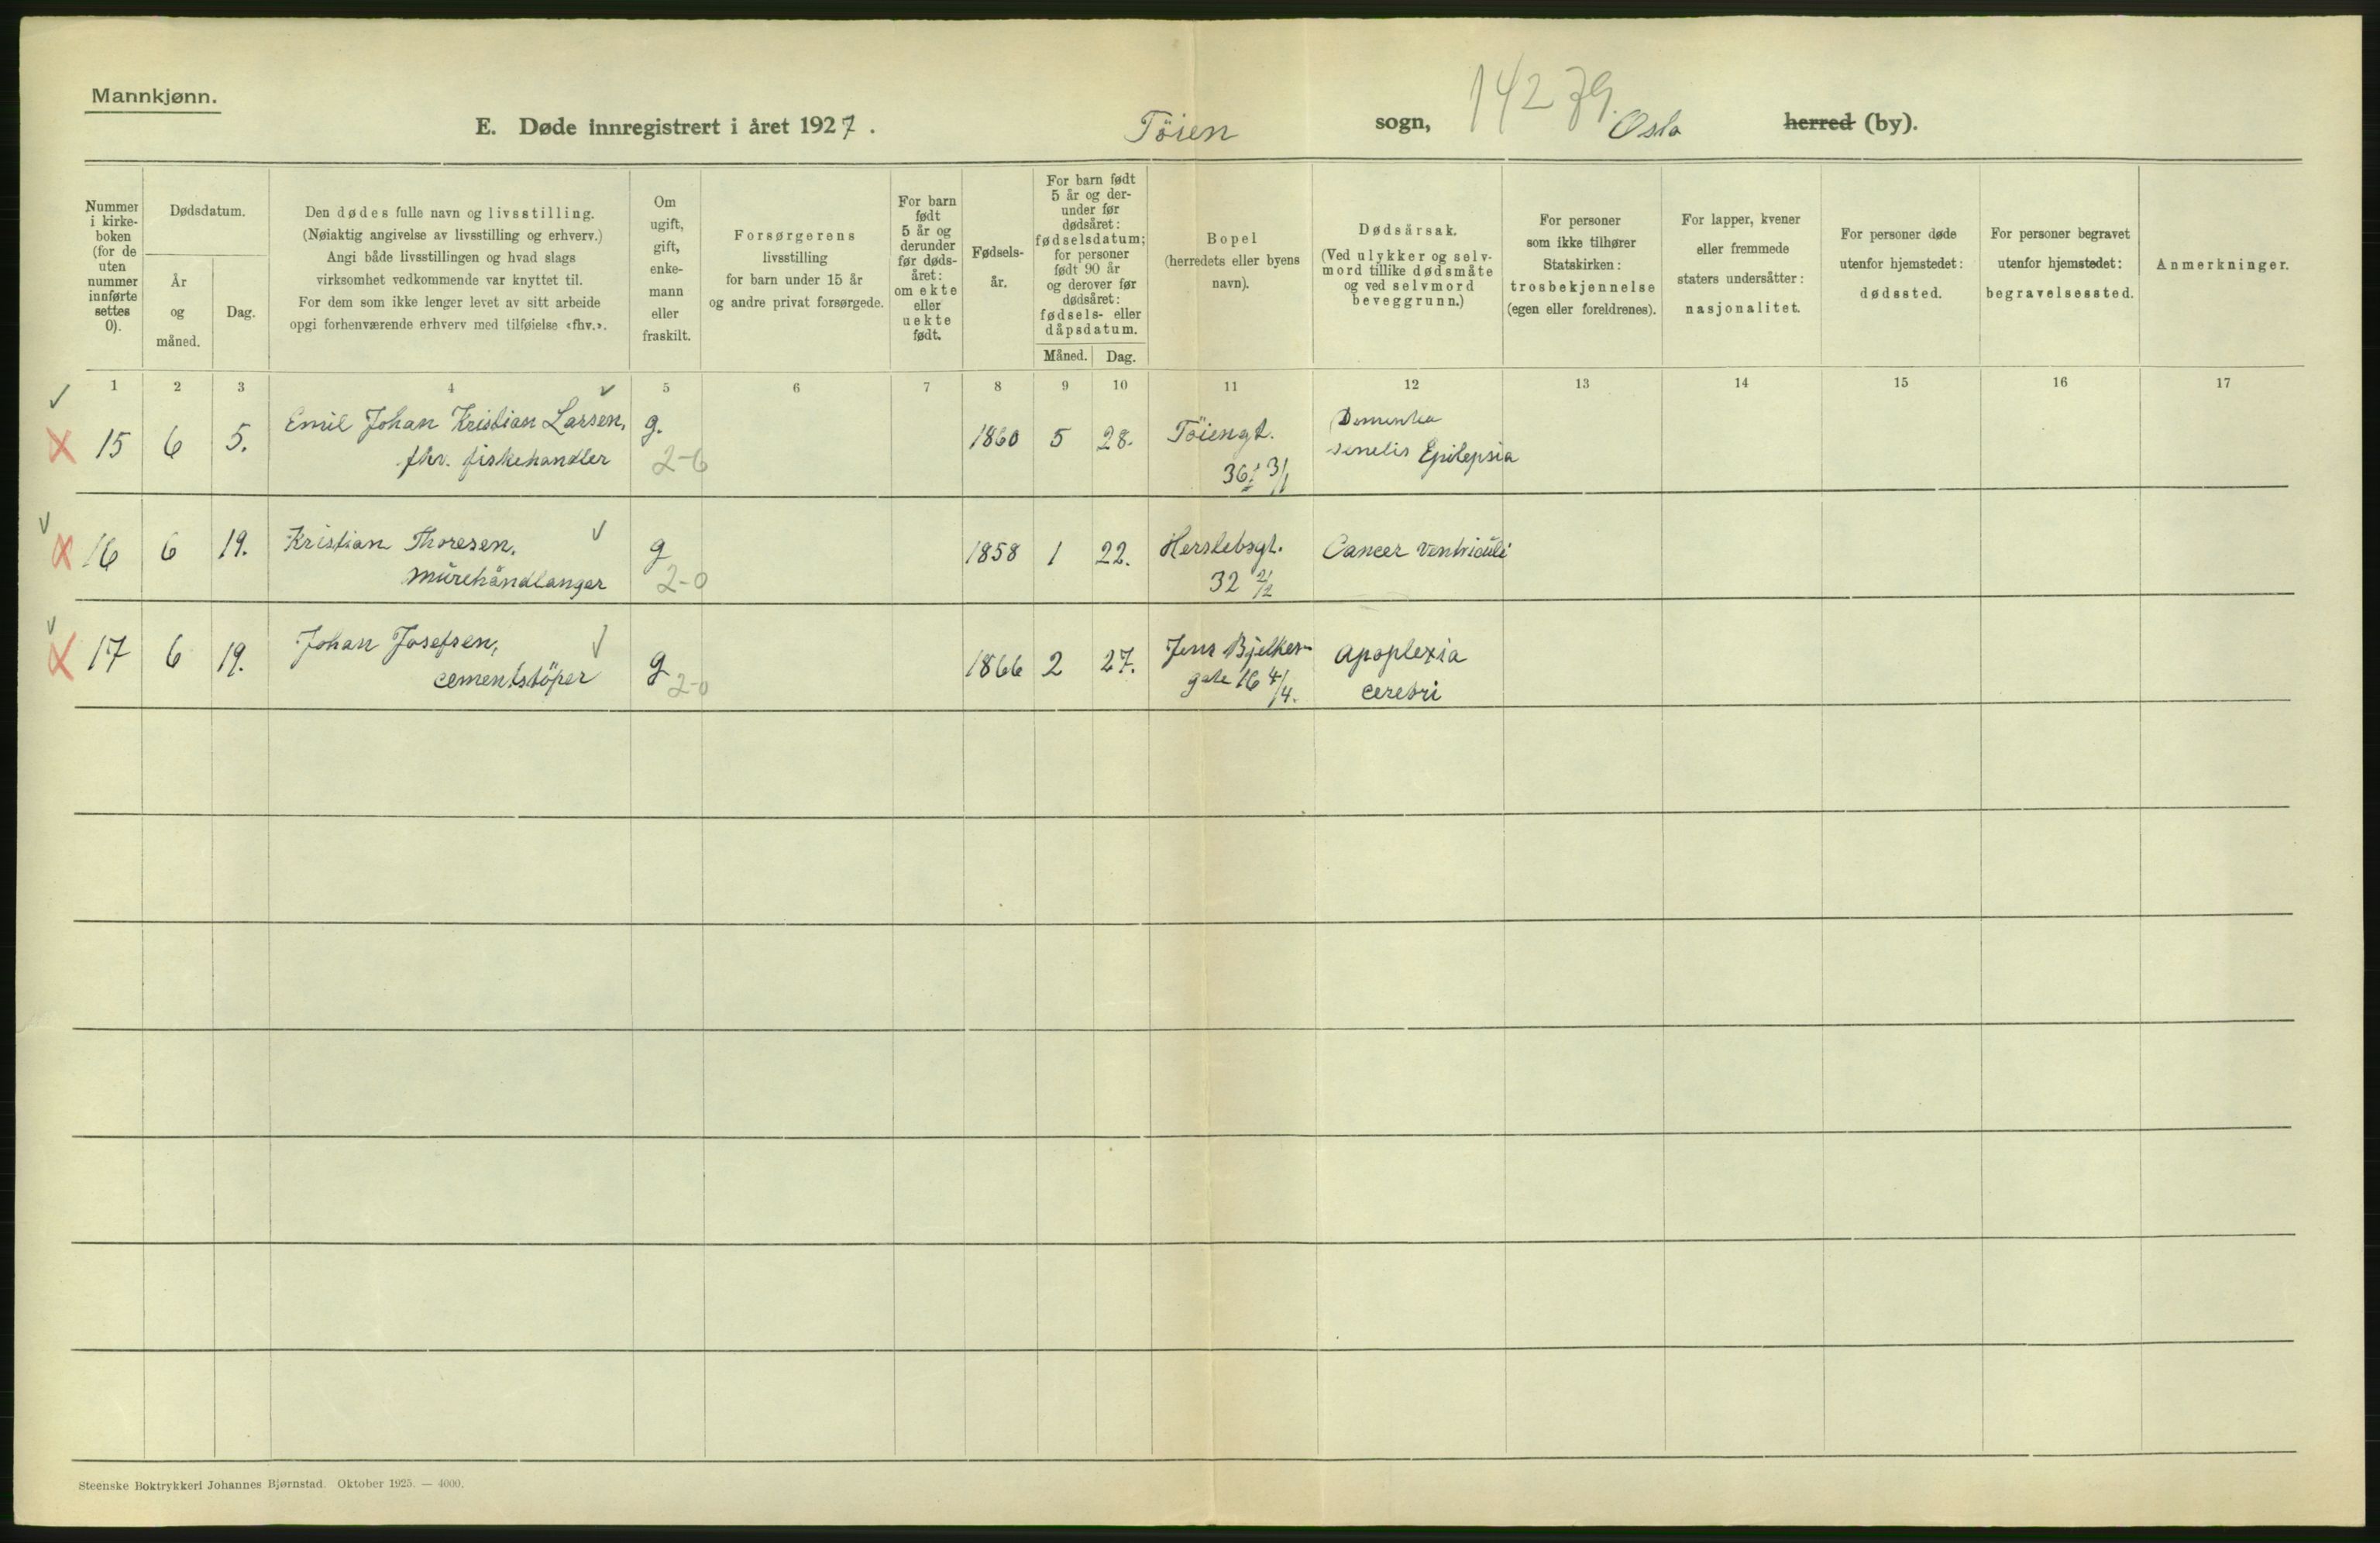 Mannkjønn.
14279.
E. Døde innregistrert i året 1927. Töien sogn, Oslo herred (by).
Nummer i kirkeboken (for de uten nummer innførte settes 0).
Dødsdatum.
År og måned.
Dag.
Den dødes fulle navn og livsstilling.
(Nøiaktig angivelse av livsstilling og erhverv.)
Angi både livsstillingen og hvad slags
virksomhet vedkommende var knyttet til.
For dem som ikke lenger levet av sitt arbeide
opgi forhenværende erhverv med tilføielse «fhv.».
Om ugift, gift, enkemann eller fraskilt.
Forsørgerens
livsstilling
for barn under 15 år
og andre privat forsørgede.
For barn født 5 år og derunder før dødsåret: om ekte eller uekte født.
Fødselsår.
For barn født 5 år og derunder før dødsåret: fødselsdatum; for personer født 90 år og derover før dødsåret: fødsels- eller dåpsdatum.
Måned. Dag.
Bopel
(herredets eller byens
navn).
Dødsårsak.
(Ved ulykker og selvmord tillike dødsmåte og ved selvmord beveggrunn.)
For personer
som ikke tilhører
Statskirken:
trosbekjennelse
(egen eller foreldrenes).
For lapper, kvener
eller fremmede
staters undersåtter:
nasjonalitet.
For personer døde
utenfor hjemstedet:
dødssted.
For personer begravet
utenfor hjemstedet:
begravelsessted.
Anmerkninger.
1 2 3 4 5 6 7 8 9 10 11 12 13 14 15 16 17
15 6 5. Emil Johan Kristian Larsen, g. 1860 5 28. Töiengt. Dementia
fhv. fiskehandler 2-6 36 3/1 senelis Epilepsia
16 6 19. Kristian Thoresen, g 1858 1 22. Herslebsgt. Cancer ventriculi
murehåndlanger 2-0 32 2/2
17 6 19. Johan Josefsen, g 1866 2 27. Jens Bjelkes- apoplexia
cementstöper 2-0 gate 16 4/4. cerebri
Steenske Boktrykkeri Johannes Bjørnstad. Oktober 1925. — 4000.